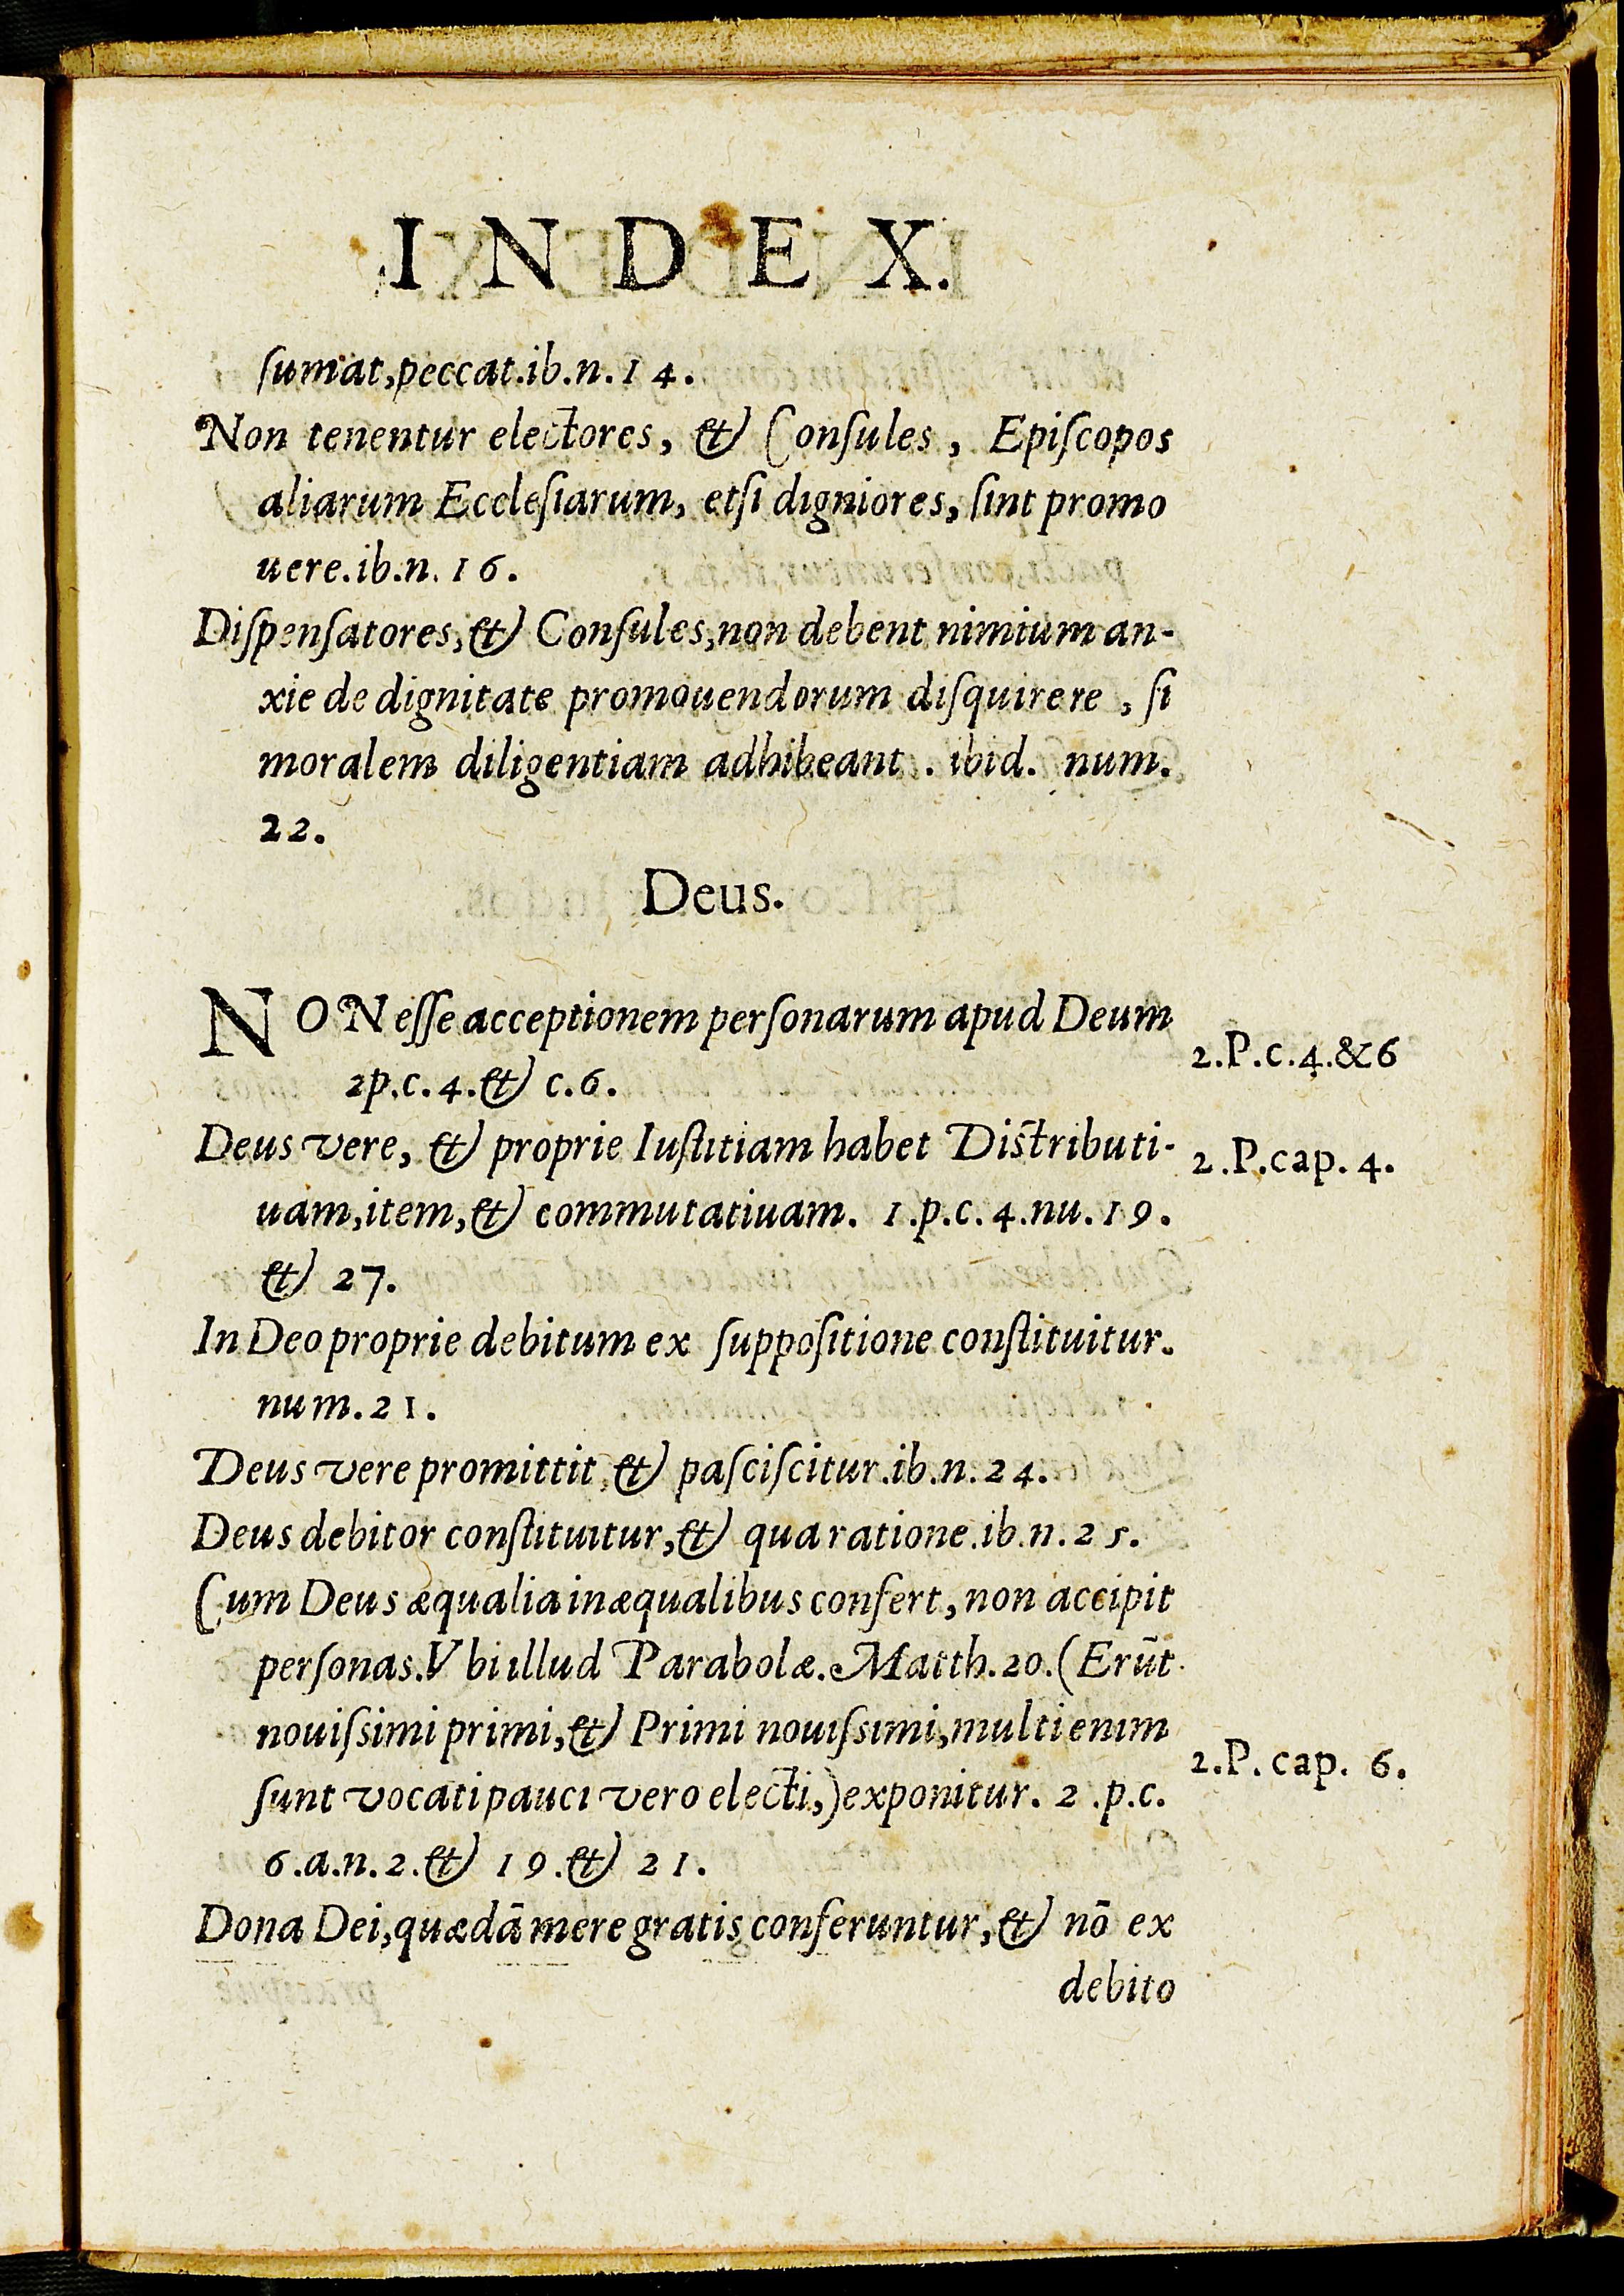 INDEX.
ſumat, peccat. ib. n. 14.
Non tenentur electores, & Conſules, Epiſcopos
aliarum Eccleſiarum, etſi digniores, ſint promo
uere. ib. n. 16.
Diſpenſatores, & Conſules, non debent nimium an-
xie de dignitate promouendorum diſquirere, ſi
moralem diligentiam adhibeant. ibid. num.
22.
Deus.
NON eſſe acceptionem perſonarum apud Deum
2p. c. 4. & c. 6.
2. P. c. 4. & 6
Deus vere, & proprie Iuſtitiam habet Diſtributi-
2. P. cap. 4.
uam, item, & commutatiuam. 1. p. c. 4. nu. 19.
& 27.
In Deo proprie debitum ex ſuppoſitione conſtituitur.
num. 21.
Deus vere promittit, & paſciſcitur. ib. n. 24.
Deus debitor conſtituitur, & qua ratione. ib. n. 25.
Cum Deus æqualia inæqualibus confert, non accipit
perſonas. Vbi illud Parabolæ. Matth. 20. (Erūt
nouiſsimi primi, & Primi nouiſsimi, multi enim
ſunt vocati pauci vero electi,) exponitur. 2. p. c.
2. P. cap. 6.
6. a. n. 2. & 19. & 21.
Dona Dei, quædā mere gratis conferuntur, & nō ex
debito